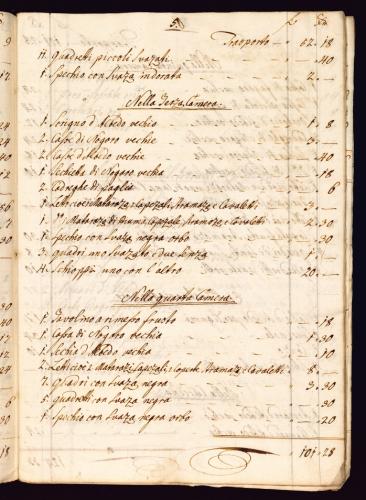 5.
L
Trasporto - 62.18
4. quadretti piccoli Suazati - - .40
1. Spechio con Suaza indorata - 2. -
Nella Terza Camera.
1. Scrigno d'Albedo vechio - 1. 8
2. Casse di Nogaro vechie - 3. -
2. Casse d'Albedo vechie - - .40
1. di Nogaro vechia - - .18
2. Cadreghe di Paglia - - 6
Mataraza e Capezali Stramaze e Cavaletti - 3.30
1. Mataraza di Piuma Capezale Stramaze e Cavaletti - 2.30
1. Spechio con Suaza negra orbo - .30
3. quadri uno Suazato e due Senza - 1. -
4. Schioppi uno con l'altro - 20. -
Nella quarta Camera.
1. Tavolino a rimesso frusto - - .18
1. Cassa di Nogaro vechia - 1.30
1. d'Albedo vechia - - .10
2. Matarazi Capezali e Coperte Stramaze e Cavaletti - 8. -
7. Quadri con Suaza negra - 3.30
5. quadretti con Suaza negra - - .30
1. Spechio con Suaza negra orbo - - .20
101.28